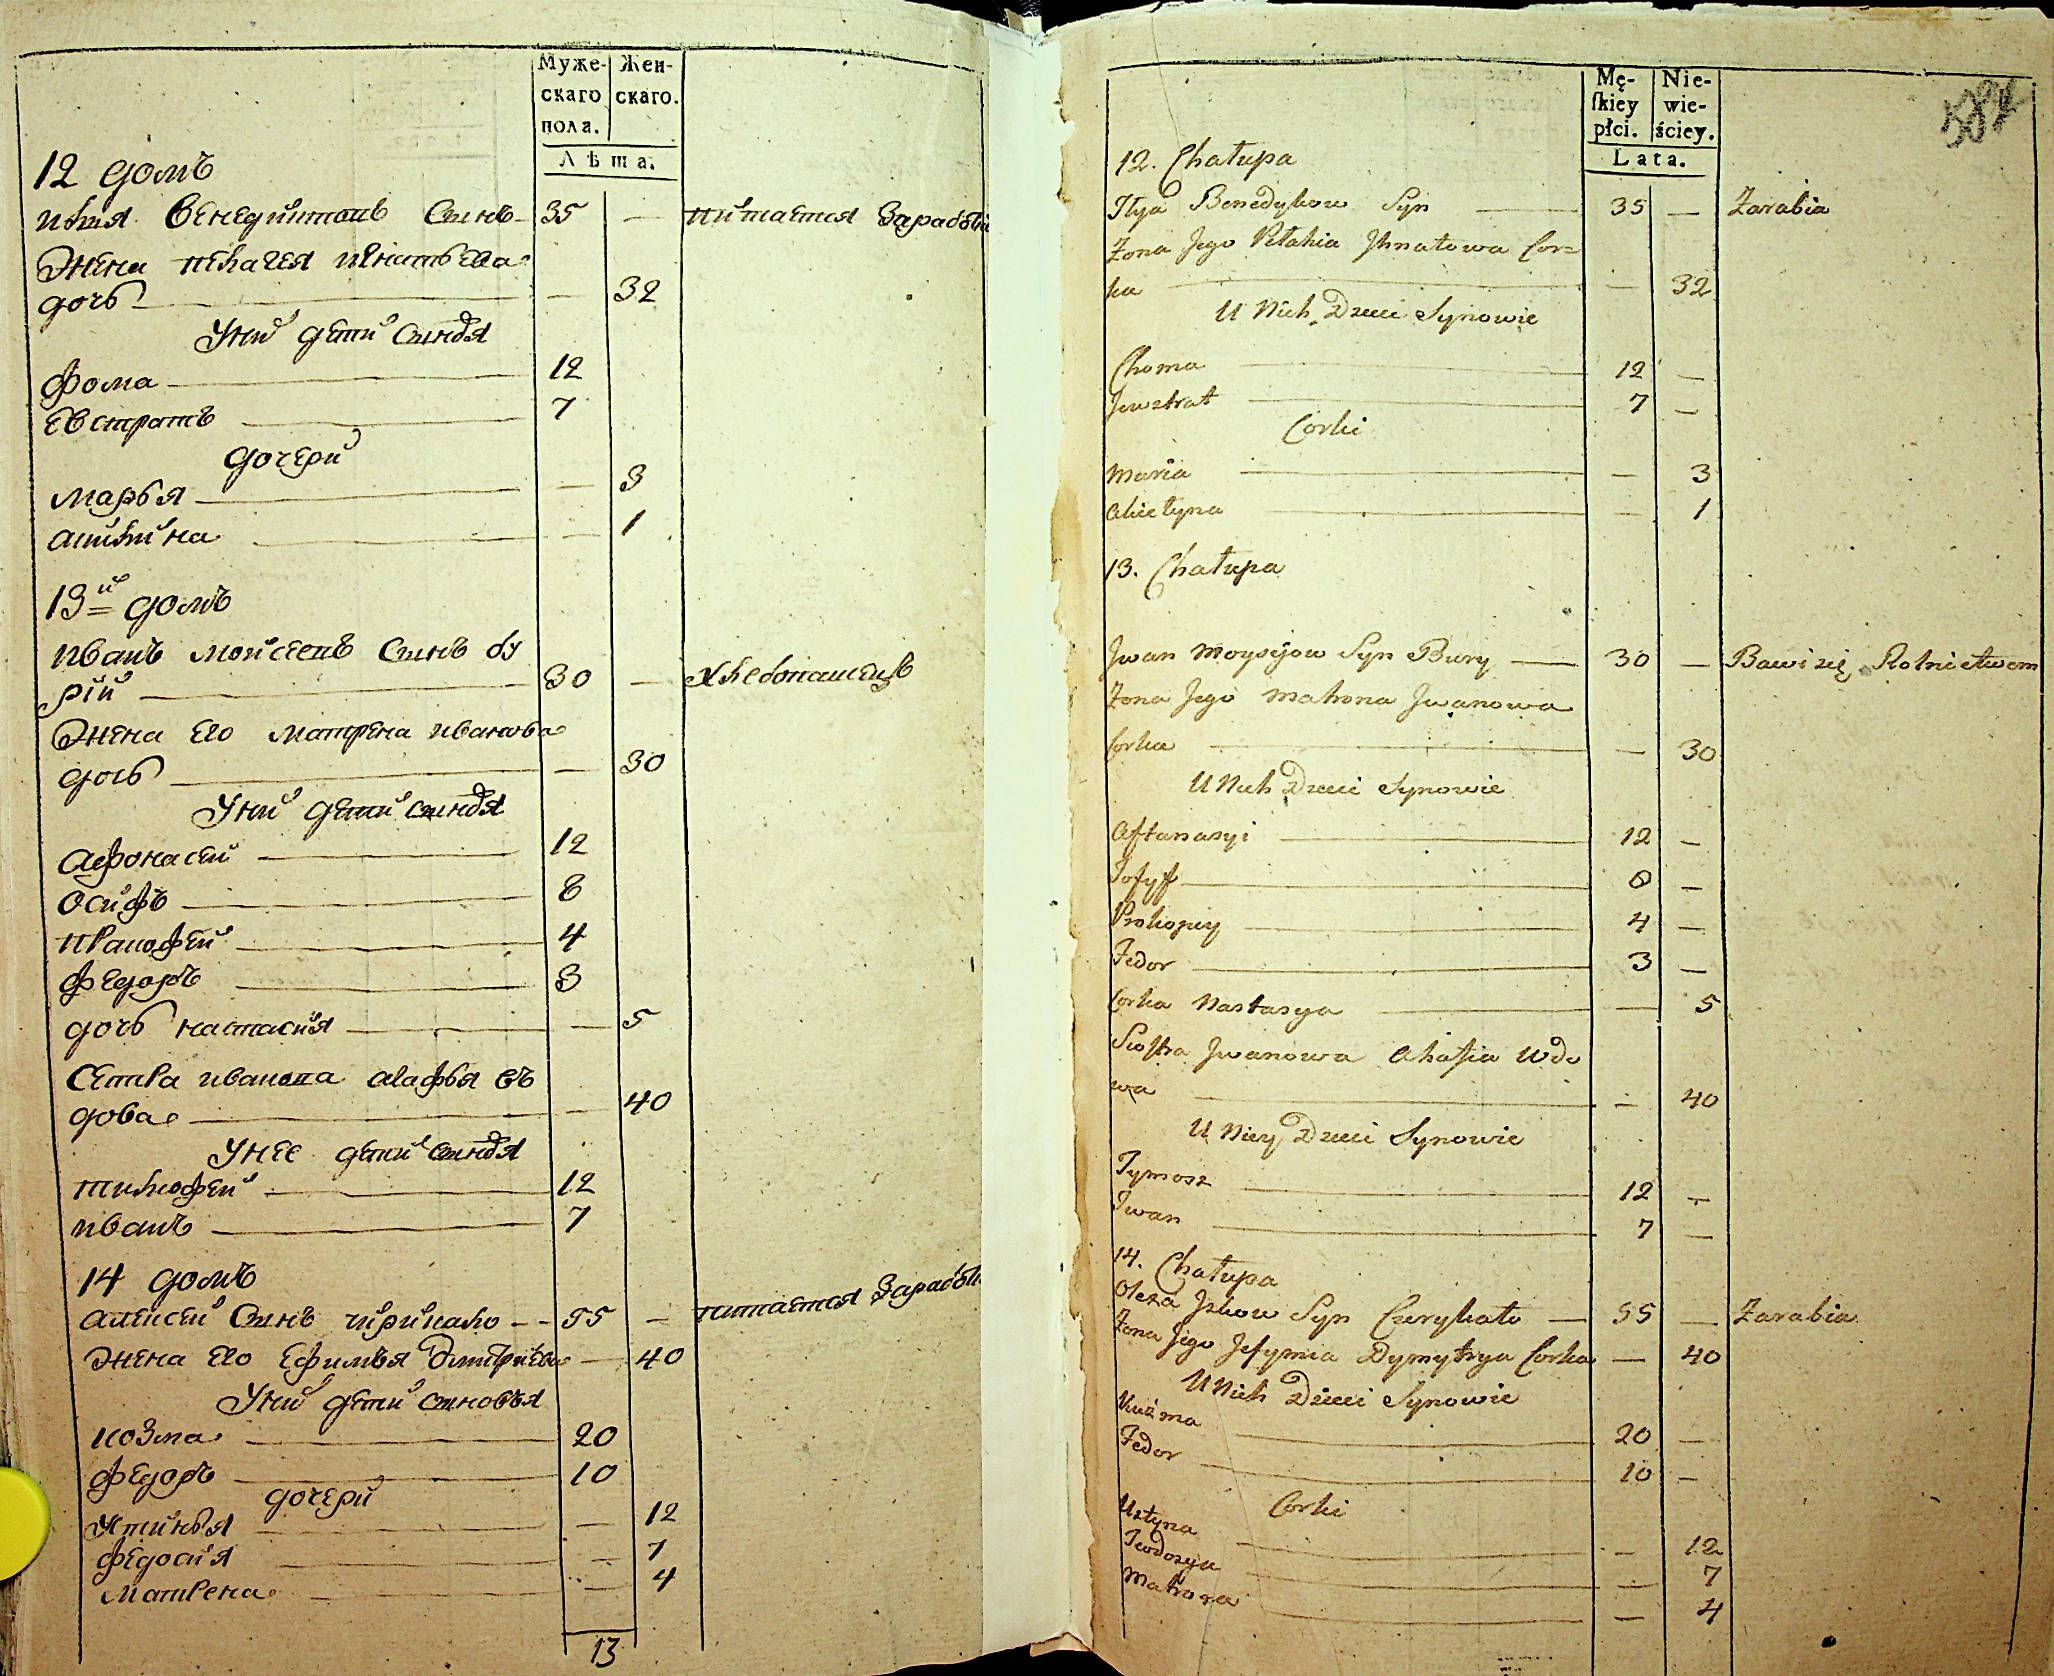 Муже-
скаго
пола.
Жен-
скаго.
Лѣта.
12 домъ
Илья Венедиктовъ сынъ 35 — питается заработк
Жена Пелагея Игнатьева
дочь — 32
У них дети сыновья
Фома 12
Евстратъ 7
дочери
Марья — 3
Акилина — 1
13й домъ
Иванъ Мойсеевъ сынъ Бу
рий 30 — хлебопашецъ
Жена его Матрена Иванова
дочь — 30
У них дети сыновья
Афонасей 12
Осифъ 8
Пракофей 4
Федоръ 3
дочь Настасия — 5
Сестра Иванова Агафья въ
дова — 40
У нее дети сыновья
Тимофей 12
Иванъ 7
14 домъ
Алексей сынъ Чирикало 55 — питается заработк
Жена его Ефимья Дмитриева — 40
У них дети сыновья
Козма 20
Федоръ 10
дочери
Устинья — 12
Федосия — 7
Матрена — 4
13
Mę-
skiey
płci.
Nie-
wie-
ściey.
Lata.
587
12. Chałupa
Ilya Benedykow Syn 35 — Zarabia
Żona Jego Pelahia Jhnatowa Cor=
ka — 32
U Nich Dzieci Synowie
Choma 12 —
Jewstrat 7 —
Corki
Maria — 3
Akielyna — 1
13. Chałupa
Jwan Moysejow Syn Bury 30 — Bawi się Rolnictwem
Żona Jego Matrona Jwanowa
Corka — 30
U Nich Dzieci Synowie
Aftanasyi 12 —
Josyf 8 —
Prokopiey 4 —
Fedor 3 —
Corka Nastasya — 5
Siostra Jwanowa Ahafia Wdo
wa — 40
U Niey Dzieci Synowie
Tymosz 12 —
Jwan 7 —
14. Chałupa
Olexa Jzkow Syn Czerykało — 55 — Zarabia
Żona Jego Jefymia Dymytrya Corka — 40
U Nich Dzieci Synowie
Kuźma 20 —
Fedor 10 —
Corki
Ustyna — 12
Teodozya — 7
Matrona — 4